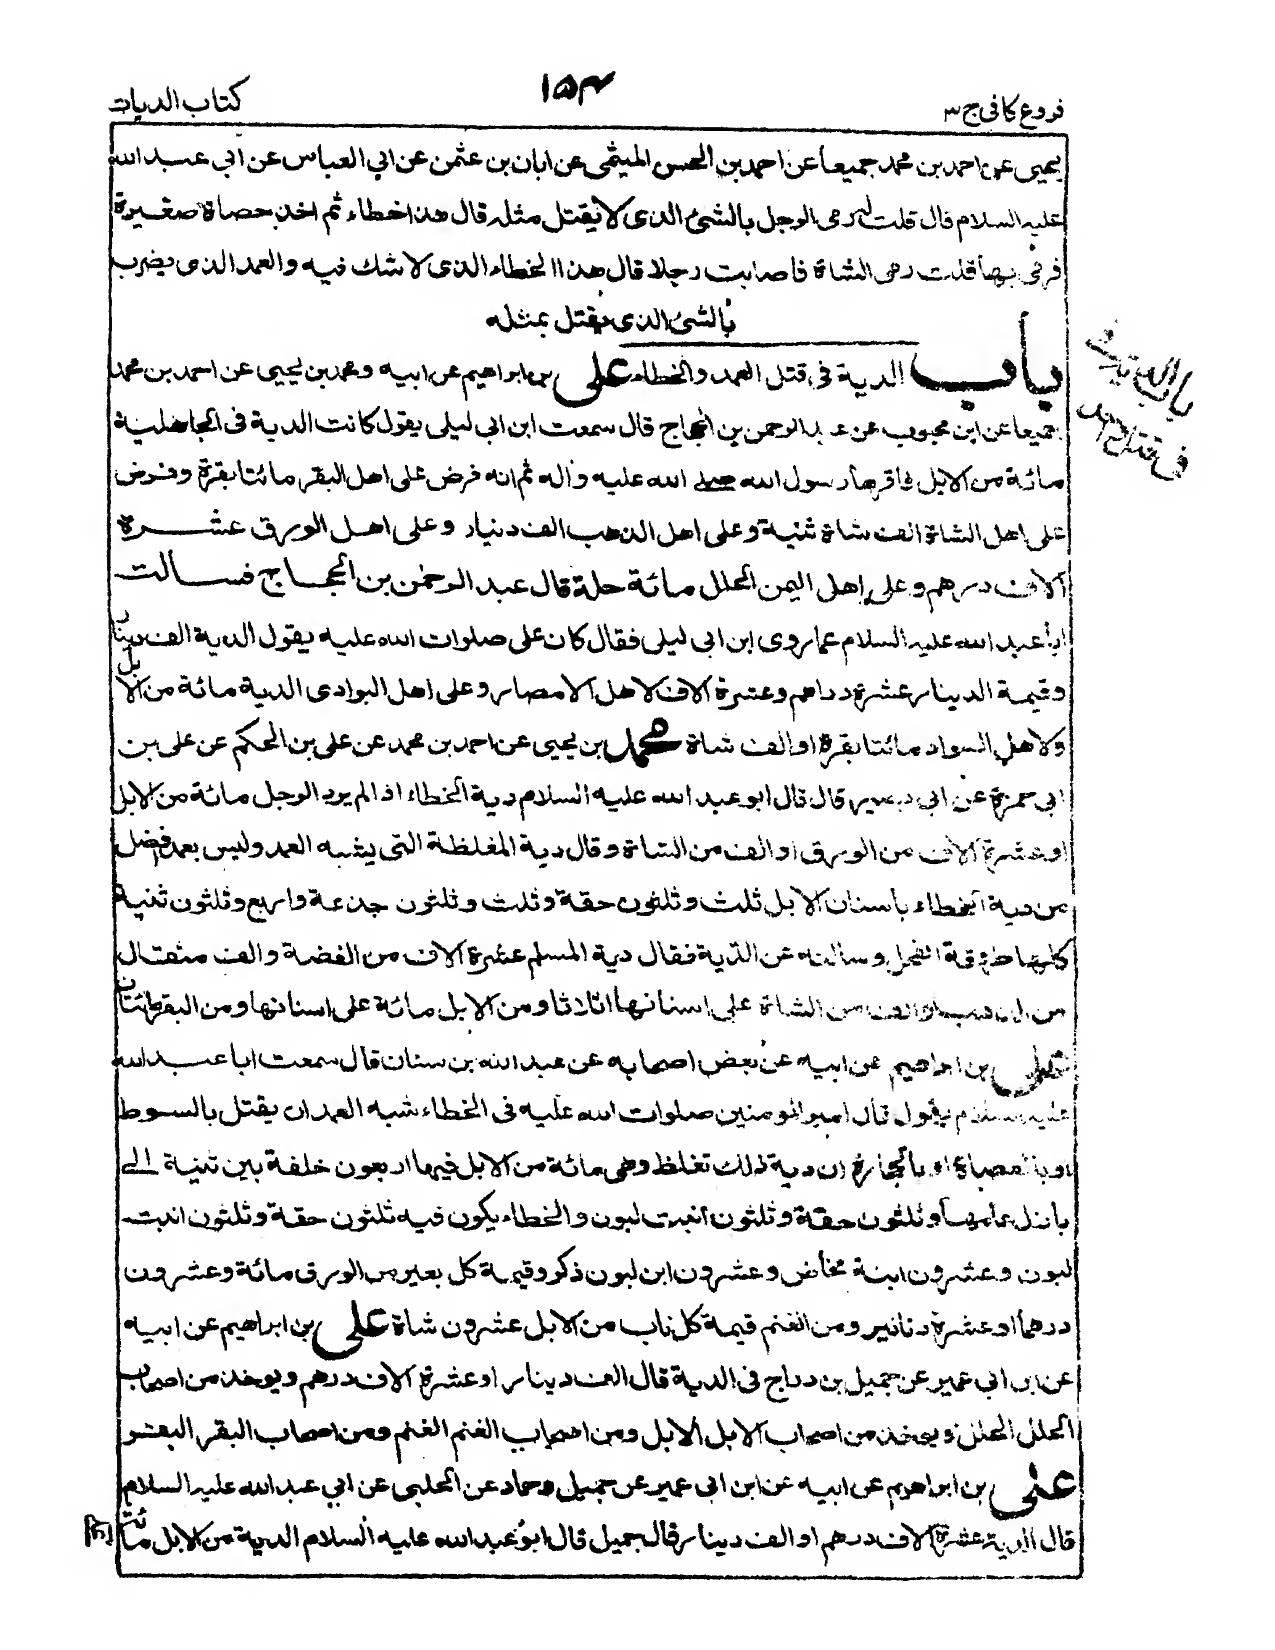 فروع كافى ج ٣
١٥٤
كتاب الديات
يحيى عن احمد بن محمد جميعا عن احمد بن الحسن الميثمى عن ابان بن عثمن عن ابي العباس عن ابى عبد الله
عليه السلام قال قلت له رمى الرجل بالشئ الذى لا يقتل مثله قال هذا خطاء ثم اخذ حصاة صغيرة
فرمى بها قلت رمى الشاة فاصابت رجلا قال هذا الخطاء الذى لا شك فيه والعمد الذى يضرب
بالشئ الذى يقتل بمثله
باب الدية فى قتل العمد والخطاء على بن ابراهيم عن ابيه ومحمد بن يحيى عن احمد بن محمد
باب الدية
فى قتل العمد
جميعا عن ابن محبوب عن عبد الرحمن بن الحجاج قال سمعت ابن ابى ليلى يقول كانت الدية فى الجاهلية
مائة من الابل فاقرها رسول الله صلى الله عليه واله ثم انه فرض على اهل البقر مائتا بقرة وفرض
على اهل الشاة الف شاة ثنية وعلى اهل الذهب الف دينار وعلى اهل الورق عشرة
آلاف درهم وعلى اهل اليمن الحلل مائة حلة قال عبد الرحمن بن الحجاج فسالت
ابا عبد الله عليه السلام عما روى ابن ابى ليلى فقال كان على صلوات الله عليه يقول الدية الف دينار
وقيمة الدينار عشرة دراهم وعشرة آلاف لاهل الامصار وعلى اهل البوادى الدية مائة من الابل
ولاهل السواد مائتا بقرة او الف شاة محمد بن يحيى عن احمد بن محمد عن على بن الحكم عن على بن
ابى حمزة عن ابى بصير قال قال ابو عبد الله عليه السلام دية الخطاء اذا لم يرد الرجل مائة من الابل
او عشرة آلاف من الورق او الف من الشاة وقال دية المغلظة التى يشبه العمد وليس بعمد افضل
من دية الخطاء باسنان الابل ثلث وثلثون حقة وثلث وثلثون جذعة واربع وثلثون ثنية
كلها طروقة الفحل وسالته عن الدية فقال دية المسلم عشرة آلاف من الفضة والف مثقال
من الذهب او الف من الشاة على اسنانها اثلاثا ومن الابل مائة على اسنانها ومن البقر مائتان
على بن ابراهيم عن ابيه عن بعض اصحابه عن عبد الله بن سنان قال سمعت ابا عبد الله
عليه السلام يقول قال امير المومنين صلوات الله عليه فى الخطاء شبه العمد ان يقتل بالسوط
او بالعصا او بالحجارة ان دية ذلك تغلظ وهى مائة من الابل فيها اربعون خلفة بين ثنية الى
بازل عامها وثلثون حقة وثلثون ابنت لبون والخطاء يكون فيه ثلثون حقة وثلثون ابنت
لبون وعشرون ابنة مخاض وعشرون ابن لبون ذكر وقيمة كل بعير من الورق مائة وعشرون
درهما او عشرة دنانير ومن الغنم قيمة كل ناب من الابل عشرون شاة على بن ابراهيم عن ابيه
عن ابن ابى عمير عن جميل بن دراج فى الدية قال الف دينار او عشرة آلاف درهم ويوخذ من اصحاب
الحلل الحلل ويوخذ من اصحاب الابل الابل ومن اصحاب الغنم الغنم ومن اصحاب البقر البقر
على بن ابراهيم عن ابيه عن ابن ابى عمير عن جميل وحماد عن الحلبى عن ابي عبد الله عليه السلام
قال الدية عشرة آلاف درهم او الف دينار قال جميل قال ابو عبد الله عليه السلام الدية من الابل مائة